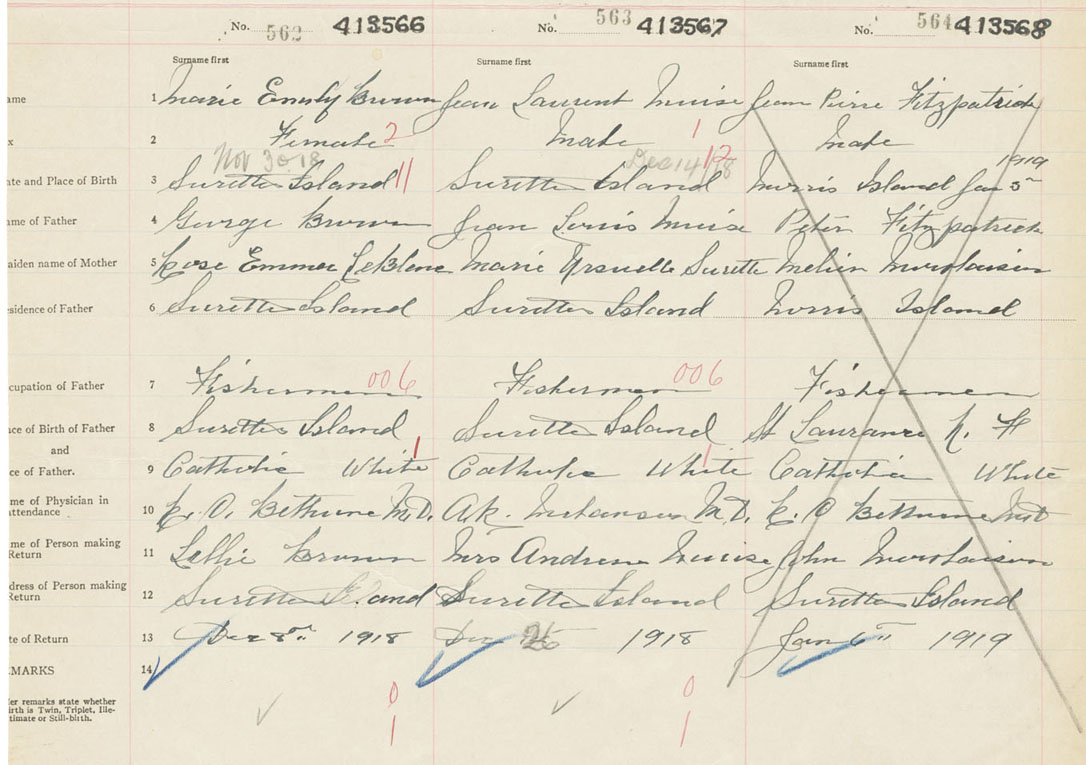 No. 562 413566 No. 563 413567 No. 564 413568
Surname first Surname first Surname first
ame 1 Marie Emily Brown Jean Laurent Muise Jean Pierre Fitzpatrick
x 2 Female 2 Male 1 Male
Nov 30 18 Dec 14/18 12 1919
ate and Place of Birth 3 Surette Island 11 Surette Island Morris Island Jan 5
ame of Father 4 George Brown Jean Louis Muise Peter Fitzpatrick
aiden name of Mother 5 Rose Emma LeBlanc Marie Ursuelle Surette
esidence of Father 6 Surette Island Surette Island Morris Island
ccupation of Father 7 Fisherman 006 Fisherman 006 Fisherman
ace of Birth of Father 8 Surette Island Surette Island St Laurance
and
ce of Father. 9 Catholic White 1 Catholic White 1 Catholic White
me of Physician in
attendance 10 Bethune M.D. A.R. M.D. Bethune
me of Person making
Return 11 Brown Mrs Andrew Muise John
dress of Person making
Return 12 Surette Island Surette Island Surette Island
te of Return 13 Dec 8th 1918 Dec 26 1918 Jan 6th 1919
EMARKS 14
er remarks state whether
irth is Twin, Triplet, Ille-
timate or Still-birth.
0 0
1 1